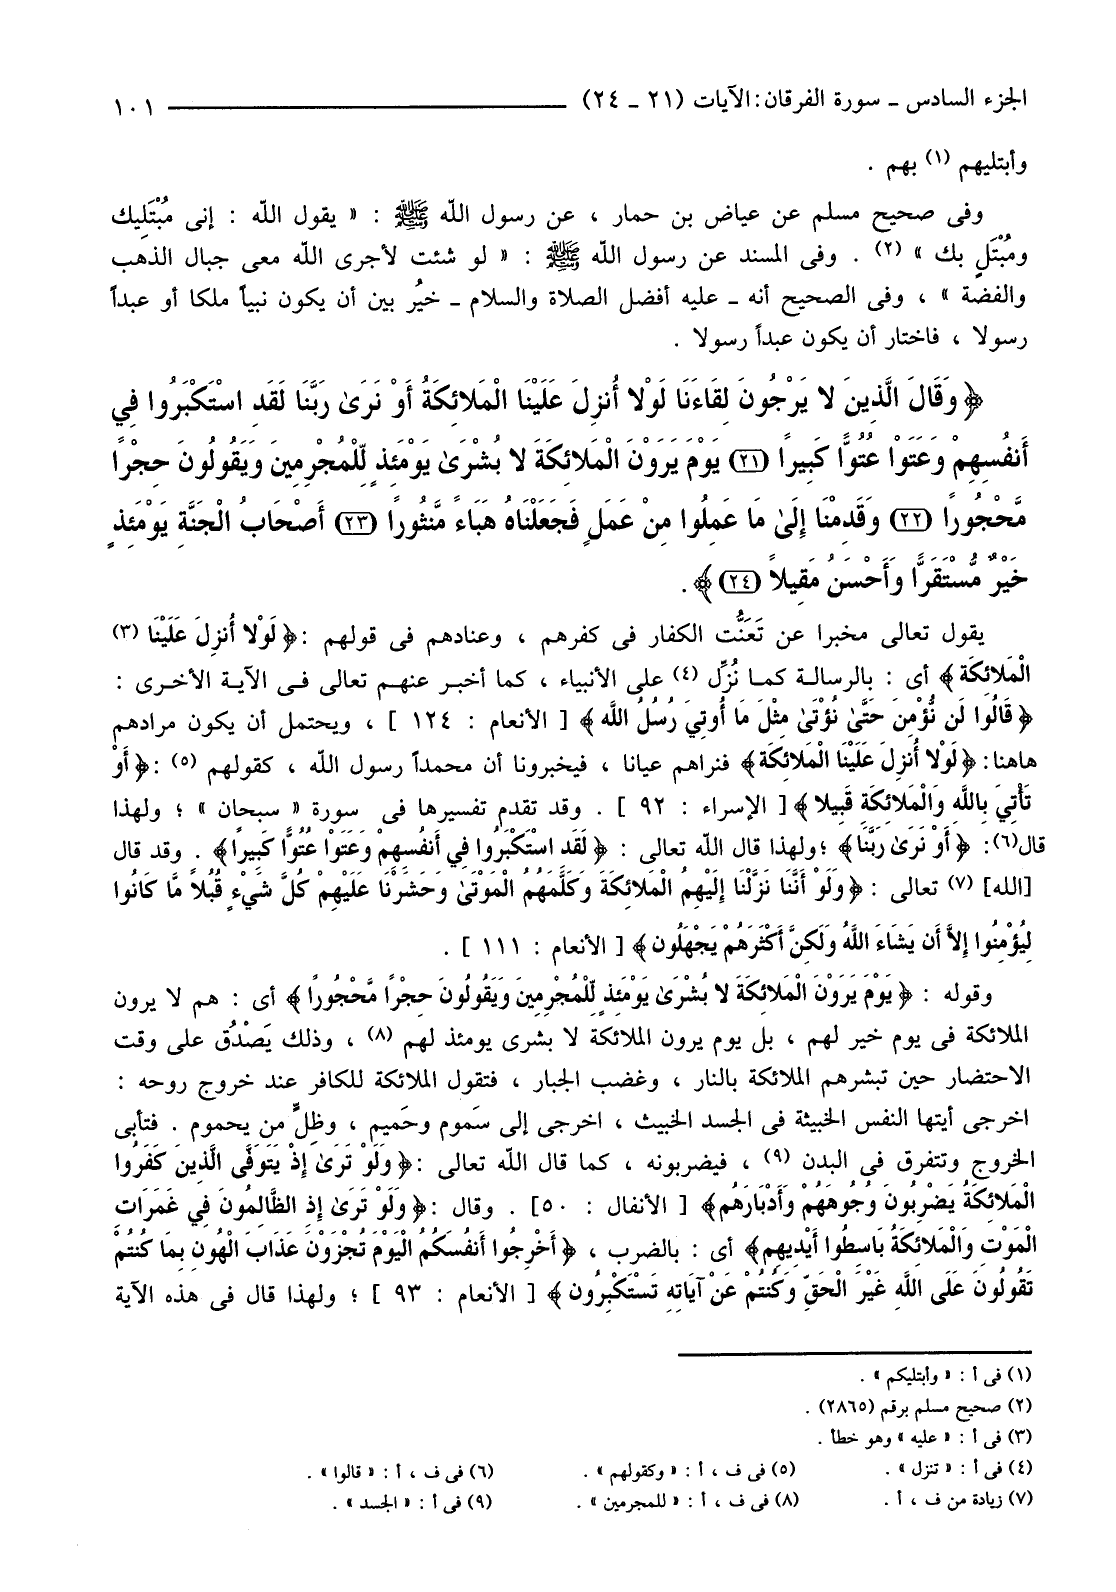 الجزء السادس ـ سورة الفرقان: الآيات (٢١ ـ ٢٤) ١٠١
وأبتليهم (١) بهم .
وفى صحيح مسلم عن عياض بن حمار ، عن رسول الله ﷺ : « يقول الله : إنى مُبْتَلِيك
ومُبْتَلٍ بك » (٢) . وفى المسند عن رسول الله ﷺ : « لو شئت لأجرى الله معى جبال الذهب
والفضة » ، وفى الصحيح أنه ـ عليه أفضل الصلاة والسلام ـ خيُر بين أن يكون نبياً ملكا أو عبداً
رسولا ، فاختار أن يكون عبداً رسولا .
﴿ وَقَالَ الَّذِينَ لا يَرْجُونَ لِقَاءَنَا لَوْلا أُنزِلَ عَلَيْنَا الْمَلائِكَةُ أَوْ نَرَىٰ رَبَّنَا لَقَدِ اسْتَكْبَرُوا فِي
أَنفُسِهِمْ وَعَتَوْا عُتُوًّا كَبِيرًا (٢١) يَوْمَ يَرَوْنَ الْمَلائِكَةَ لا بُشْرَىٰ يَوْمَئِذٍ لِّلْمُجْرِمِينَ وَيَقُولُونَ حِجْرًا
مَّحْجُورًا (٢٢) وَقَدِمْنَا إِلَىٰ مَا عَمِلُوا مِنْ عَمَلٍ فَجَعَلْنَاهُ هَبَاءً مَّنثُورًا (٢٣) أَصْحَابُ الْجَنَّةِ يَوْمَئِذٍ
خَيْرٌ مُّسْتَقَرًّا وَأَحْسَنُ مَقِيلاً (٢٤) ﴾ .
يقول تعالى مخبرا عن تَعَنُّت الكفار فى كفرهم ، وعنادهم فى قولهم : ﴿ لَوْلا أُنزِلَ عَلَيْنَا (٣)
الْمَلائِكَة ﴾ أى : بالرسالة كما نُزِّل (٤) على الأنبياء ، كما أخبر عنهم تعالى فى الآية الأخرى :
﴿ قَالُوا لَن نُّؤْمِنَ حَتَّىٰ نُؤْتَىٰ مِثْلَ مَا أُوتِيَ رُسُلُ اللَّه ﴾ [ الأنعام : ١٢٤ ] ، ويحتمل أن يكون مرادهم
هاهنا : ﴿ لَوْلا أُنزِلَ عَلَيْنَا الْمَلائِكَة ﴾ فنراهم عيانا ، فيخبرونا أن محمداً رسول الله ، كقولهم (٥) : ﴿ أَوْ
تَأْتِيَ بِاللَّهِ وَالْمَلائِكَةِ قَبِيلا ﴾ [ الإسراء : ٩٢ ] . وقد تقدم تفسيرها فى سورة « سبحان » ؛ ولهذا
قال(٦): ﴿ أَوْ نَرَىٰ رَبَّنَا ﴾ ؛ولهذا قال الله تعالى : ﴿ لَقَدِ اسْتَكْبَرُوا فِي أَنفُسِهِمْ وَعَتَوْا عُتُوًّا كَبِيرًا ﴾ . وقد قال
[الله] (٧) تعالى : ﴿ وَلَوْ أَنَّنَا نَزَّلْنَا إِلَيْهِمُ الْمَلائِكَةَ وَكَلَّمَهُمُ الْمَوْتَىٰ وَحَشَرْنَا عَلَيْهِمْ كُلَّ شَيْءٍ قُبُلاً مَّا كَانُوا
لِيُؤْمِنُوا إِلاَّ أَن يَشَاءَ اللَّهُ وَلَكِنَّ أَكْثَرَهُمْ يَجْهَلُون ﴾ [ الأنعام : ١١١ ] .
وقوله : ﴿ يَوْمَ يَرَوْنَ الْمَلائِكَةَ لا بُشْرَىٰ يَوْمَئِذٍ لِّلْمُجْرِمِينَ وَيَقُولُونَ حِجْرًا مَّحْجُورًا ﴾ أى : هم لا يرون
الملائكة فى يوم خير لهم ، بل يوم يرون الملائكة لا بشرى يومئذ لهم (٨) ، وذلك يَصْدُق على وقت
الاحتضار حين تبشرهم الملائكة بالنار ، وغضب الجبار ، فتقول الملائكة للكافر عند خروج روحه :
اخرجى أيتها النفس الخبيثة فى الجسد الخبيث ، اخرجى إلى سَموم وحَميم ، وظِلٍّ من يحموم . فتأبى
الخروج وتتفرق فى البدن (٩) ، فيضربونه ، كما قال الله تعالى : ﴿ وَلَوْ تَرَىٰ إِذْ يَتَوَفَّى الَّذِينَ كَفَرُوا
الْمَلائِكَةُ يَضْرِبُونَ وُجُوهَهُمْ وَأَدْبَارَهُم ﴾ [ الأنفال : ٥٠] . وقال : ﴿ وَلَوْ تَرَىٰ إِذِ الظَّالِمُونَ فِي غَمَرَاتِ
الْمَوْتِ وَالْمَلائِكَةُ بَاسِطُوا أَيْدِيهِم ﴾ أى : بالضرب ، ﴿ أَخْرِجُوا أَنفُسَكُمُ الْيَوْمَ تُجْزَوْنَ عَذَابَ الْهُونِ بِمَا كُنتُمْ
تَقُولُونَ عَلَى اللَّهِ غَيْرَ الْحَقِّ وَكُنتُمْ عَنْ آيَاتِهِ تَسْتَكْبِرُون ﴾ [ الأنعام : ٩٣ ] ؛ ولهذا قال فى هذه الآية
(١) فى أ : « وأبتليكم » .
(٢) صحيح مسلم برقم (٢٨٦٥) .
(٣) فى أ : « عليه » وهو خطأ .
(٤) فى أ : « تنزل » . (٥) فى ف ، أ : « وكقولهم » . (٦) فى ف ، أ : « قالوا » .
(٧) زيادة من ف ، أ . (٨) فى ف ، أ : « للمجرمين » . (٩) فى أ : « الجسد » .